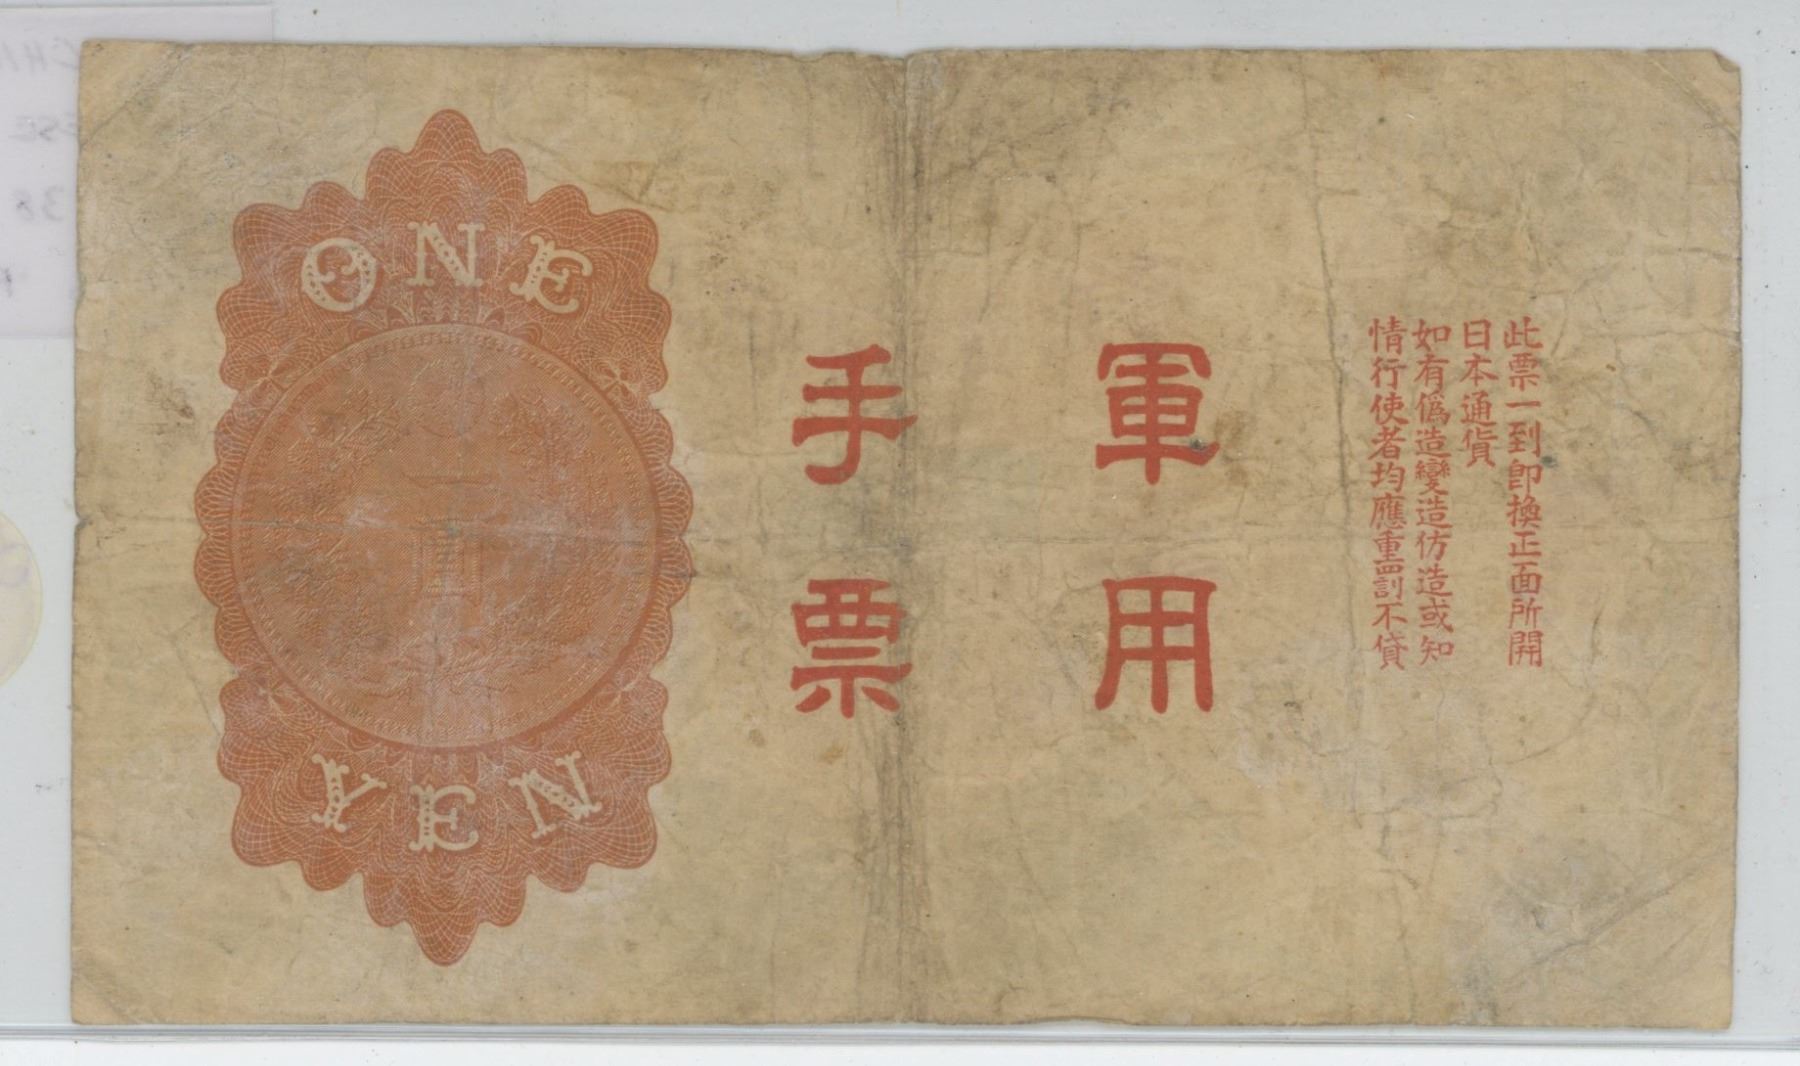 此票一到卽換正面所開
日本通貨
如有僞造變造仿造或知
情行使者均應重罰不貸
軍用
手票
ONE
YEN